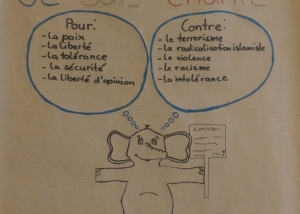 Pour:
-la paix
-la liberté
-la tolérance
-la sécurité
-la liberté d'opinion
Contre:
-le terrorisme
-la radicalisation islamiste
-le violence
-le racisme
-la intolérance